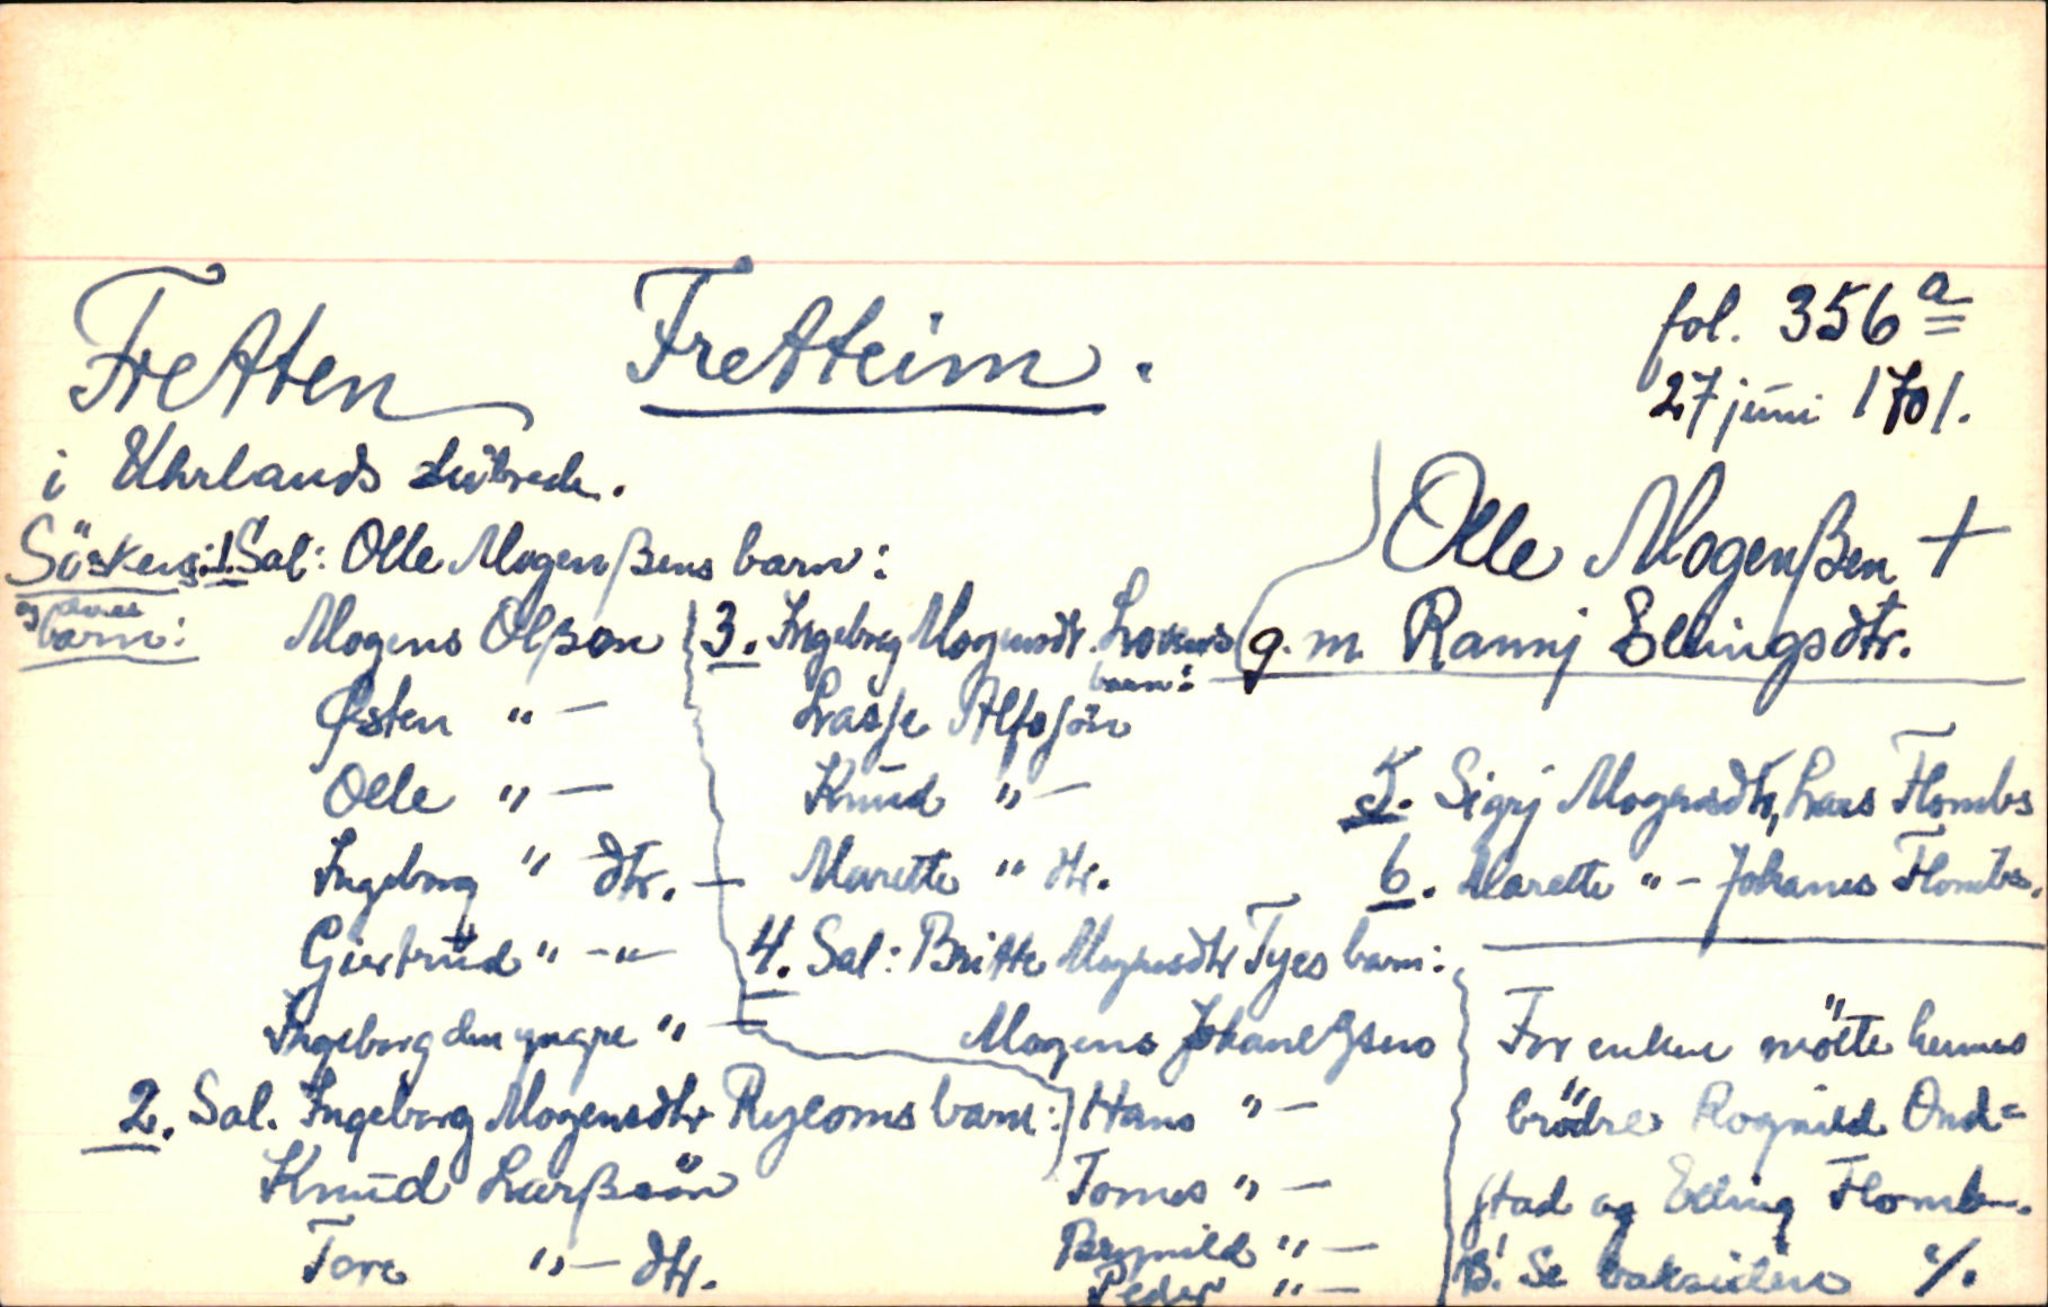 Fretten
Fretteim.
fol. 356 a
27 juni 1701.
i Uhrlands skibrede.
Olle Mogenßen +
g. m. Rannj Ellingsdtr.
Söskens: 1. Sal: Olle Mogenßens barn:
og deres
barn:
Mogens Olßøn
Østen " —
Olle " —
Ingeborg " dtr. —
Giertrud " -"-
Ingeborg den yngre " —
2. Sal. Ingeborg Mogensdtr Ryeoms barn:
Knud Larßøn
Tore " — dtr.
3. Ingeborg Mogensdtr.
barn:
Lasse Alfsön
Knud " —
Marette " dtr.
4. Sal: Britte Mogensdtr Tyes barn:
Mogens
Hans " —
Tomes " —
Brynild " —
Peder " —
5. Sigrj Mogensdtr, Lars Flombs
6. Marette " — Johanes Flombs.
For enken mötte hennes
brödre Rognild Ond=
stad og Elling Flomb.
B! Se baksiden ./.